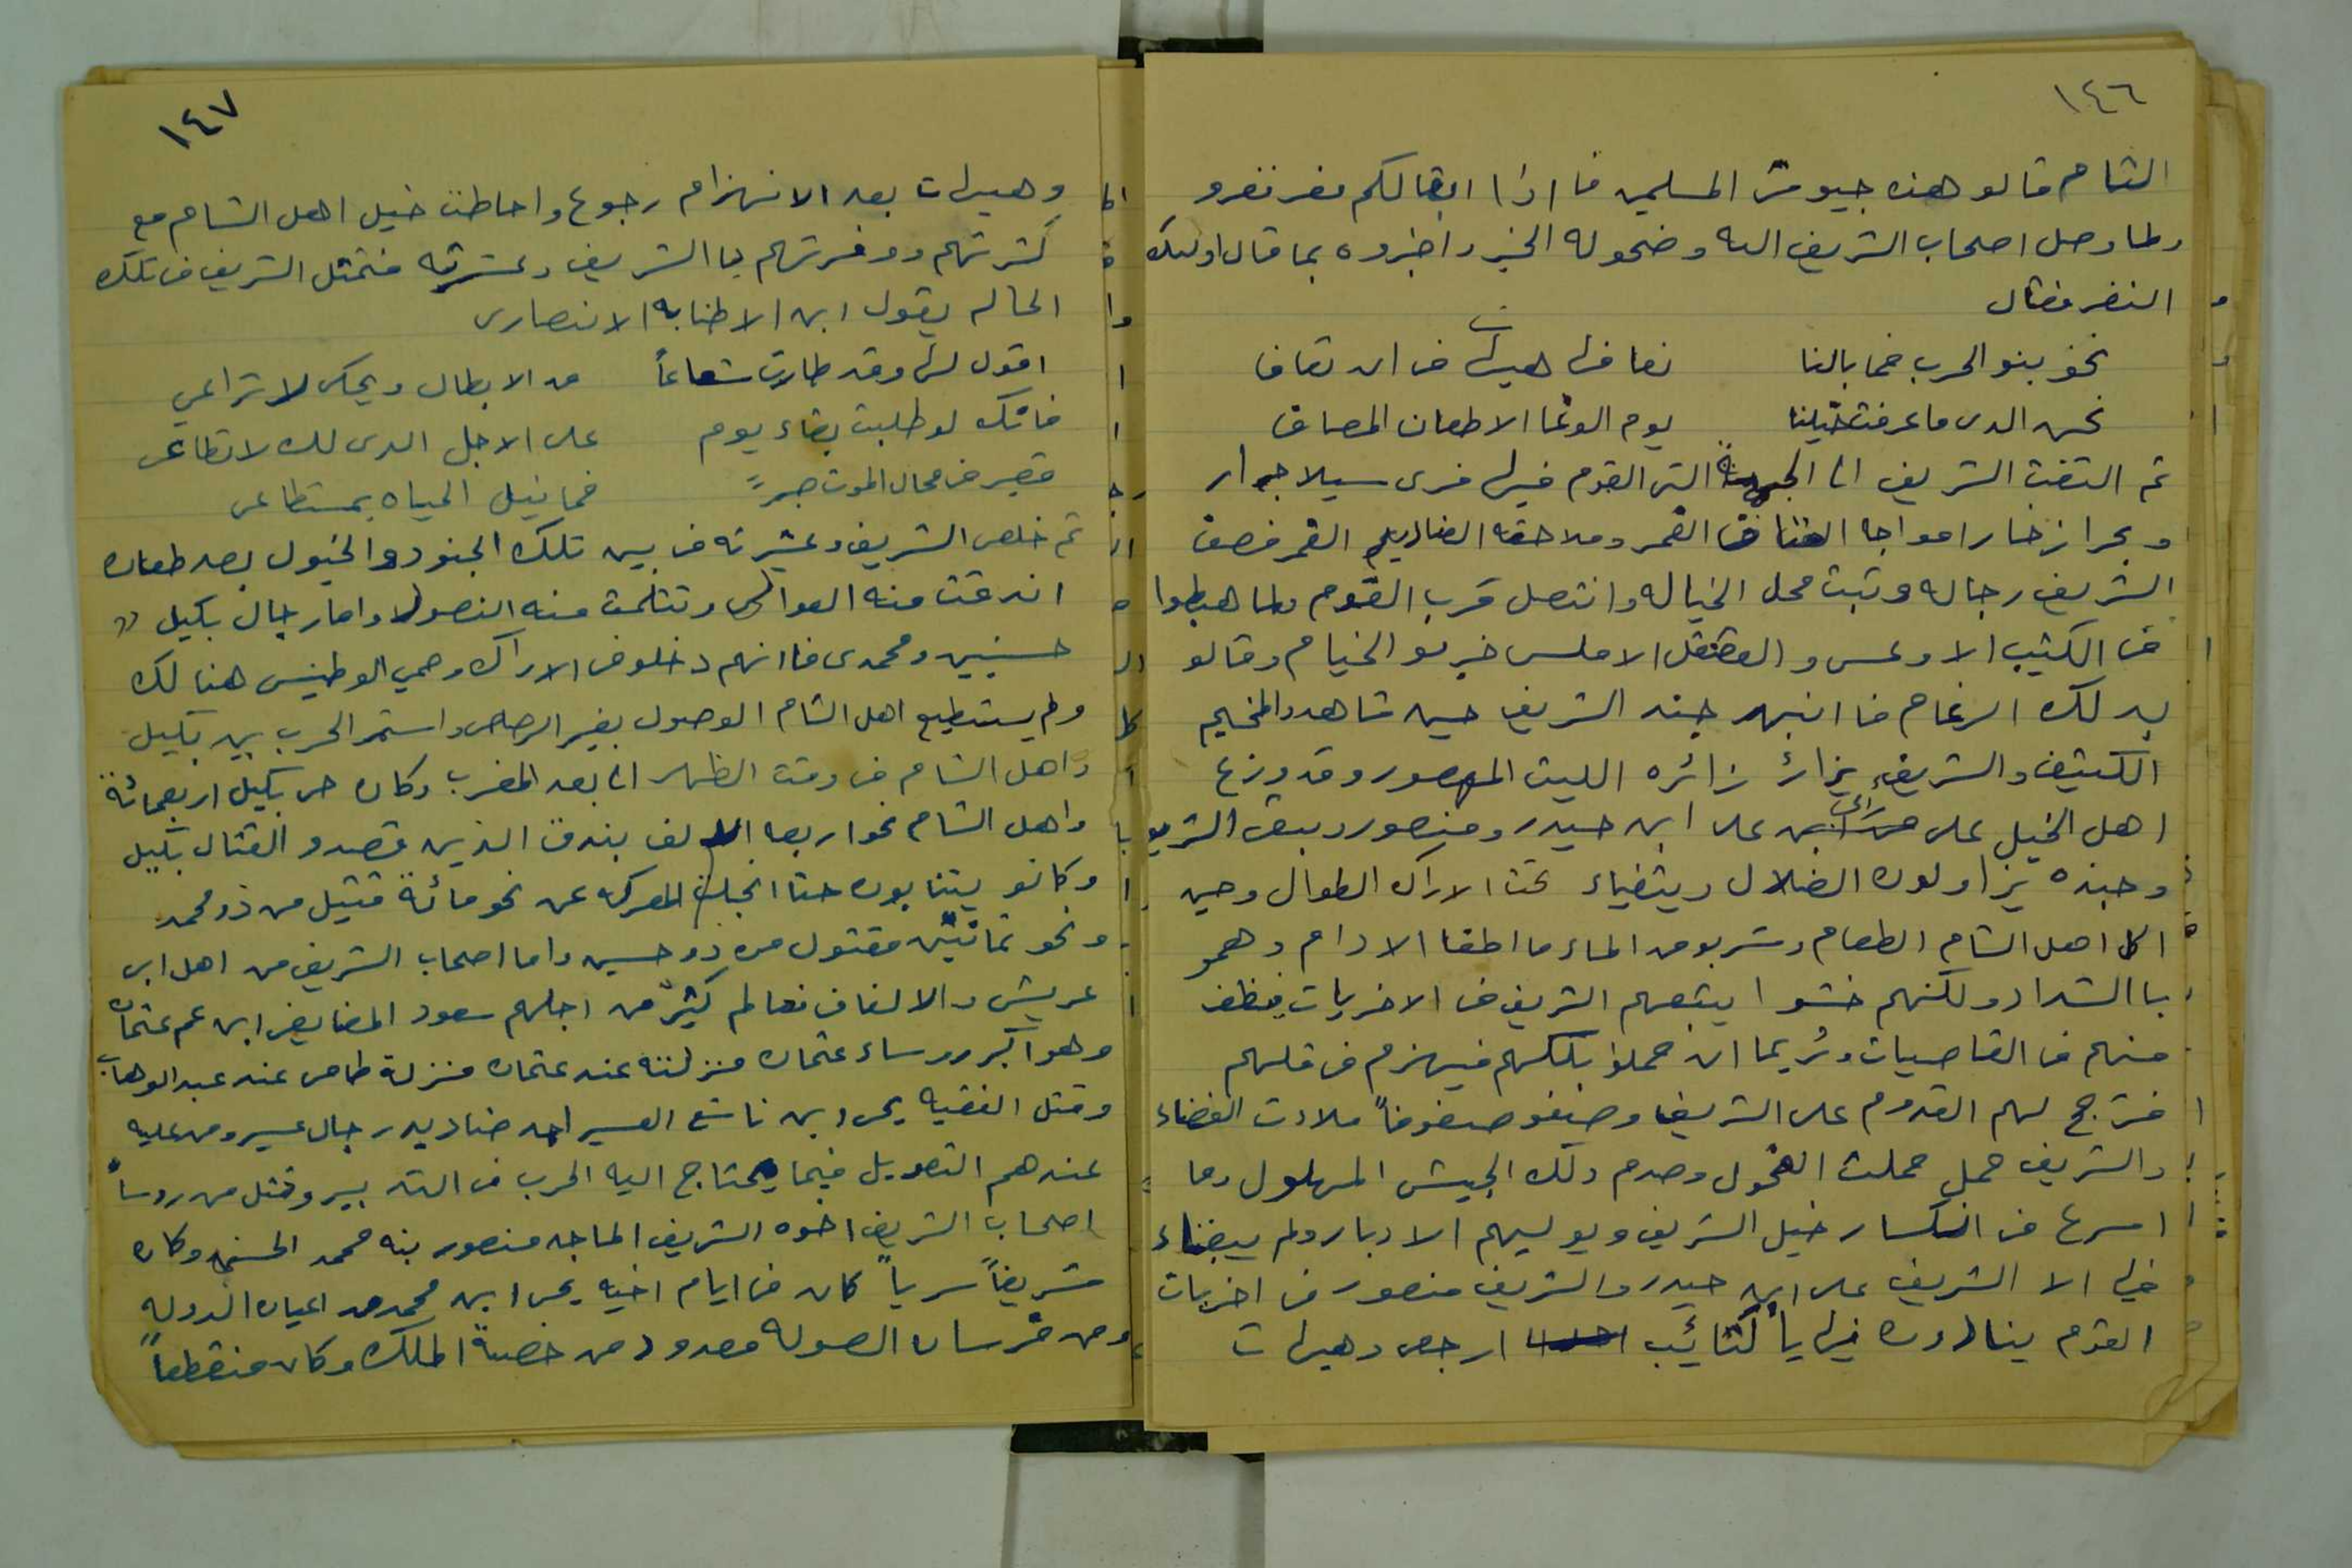 ١٤٦
الشام قالو هذه جيوش المسلمين فااذا ابقالكم مفر تفرو
ولما وصل اصحاب الشريف اليه وضحوله الخبر واخبروه بما قال اولئك
النفر فقال
نحن بنو الحرب فما بالنا نعافها هيهات ان نعاف
نحن الذي ما عرفت خيلنا يوم الوغا الا طعان المصاف
ثم التفت الشريف الى الجهة التي القوم فيها فرى سيلا جرار
وبحرا زخارا مواجا القمر وملاحقه القمر فصف
الشريف رجاله وثبت محل الخياله وانتصل قرب القوم ولما هبطوا
في الكثيب الاوعس والعقنقل الاملس ضربو الخيام وقالو
بذلك الرغام فا انبهر جند الشريف حين شاهدوا المخيم
الكثيف والشريف يزائر زائره الليث الهصور وقد وزع
اهل الخيل على رأى على ابن حيدر ومنصور وبقى الشريف
وجنده يزاولون الضلال ويتفياء تحت الاراك الطوال وحين
اكل اهل الشام الطعام وشربو من الماء ما اطفا الاوام وهمو
باالشداد ولكنهم خشو ا يتبعهم الشريف في الاخريات فيظفر
منهم في القاصيات وربما ان حملو بكلهم فيهزم في قلهم
فترجح لهم القدوم على الشريف وصفو صفوفاً ملاءت الفضاء
والشريف حمل حملت الفحول وصدم ذلك الجيش المهلول وما
اسرع في انكسار خيل الشريف ويوليهم الادبار ولم يبقاء
فيها الا الشريف على ابن حيدر والشريف منصور في اخريات
القوم ينادون فيها يا كتائب ارجعى وهيهات
١٤٧
وهيهات بعد الانهزام رجوع واحاطت خيل اهل الشام مع
كثرتهم ووفرتهم با الشريف وعشرته فتمثل الشريف في تلك
الحاله بقول ابن الاطنابه الانصارى
اقول لها وقد طارت شعاعاً من الابطال ويحكى لا تراعي
فانك لو طلبت بقاء يوم على الاجل الذى لك لا تطاعى
فصبر في مجال الموت صبراً فما نيل الحياه بمستطاعى
ثم خلص الشريف وعشرته من بين تلك الجنود والخيول بعد طعان
اندقت منه العوالى وتثلمت منه النصول واما رجال بكيل
حسنيين ومحمدى فاانهم دخلو في الاراك وحمي الوطيس هنالك
ولم يستطيع اهل الشام الوصول بغير الرصاص واستمر الحرب بين بكيل
واهل الشام في وقت الظهر الى بعد المغرب وكان حرب بكيل اربعمائة
واهل الشام نحو اربعه الالف بندق الذين قصدو القتال بكيل
وكانو يتنابون حتا انجلت المعركه عن نحو مائة قتيل من ذو محمد
ونحو ثمانين مقتول من ذو حسين واما اصحاب الشريف من اهل ابي
عريش والالفاف فعالم كثير من اجلهم سعود المضايفى ابن عم عثمان
وهو اكبر روساء عثمان منزلته عند عثمان منزلة طامى عند عبد الوهاب
وقتل الفقيه يحى ابن ناشع العسير احد صناديد رجال عسير ومن عليه
عندهم التعويل فيما يحتاج اليه الحرب من التدبير وقتل من روسأ
اصحاب الشريف اخوه الشريف الماجد منصور بنه محمد الحسنى وكان
شريفاً سرياً كان في ايام اخيه يحى ابن محمد من اعيان الدوله
ومن فرسان الصوله معدود من خصية الملك وكان منقطعاً